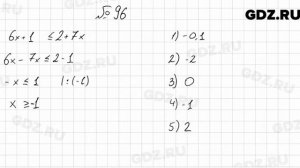 № 96
GDZ.RU
6x+1 ≤ 2+7x
6x - 7x ≤ 2-1
-x ≤ 1 | :(-1)
x ≥ -1
1) -0,1
2) -2
3) 0
4) -1
5) 2